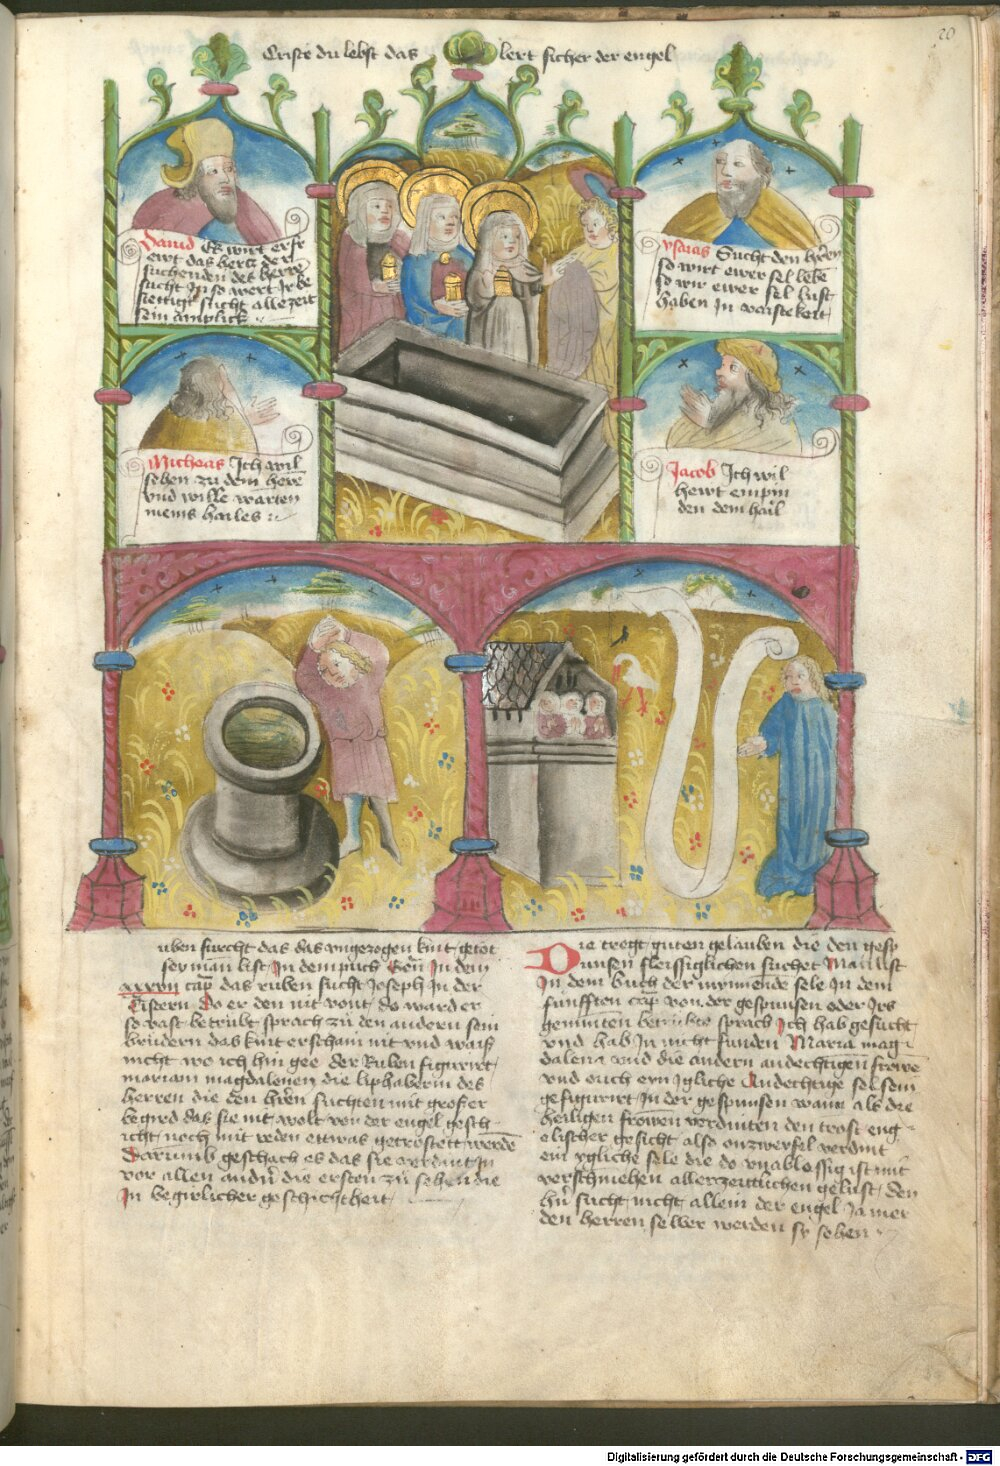 20
Criste du lebst das lert sicher der engel
Dauid Es wirt erfr
ewt das hertz der
suchenden des herrē
sucht In so wert Ir be
stettigt sucht alle zeit
sein antplick
ysaias Sucht den herrē
so wirt ewer sel lebē
so wir ewer sel lust
haben In
Micheas Ich wil
sehen zu dem herrē
vnd wille warten
meins hailes
Jacob Ich wil
hewt empfin
den dem hail
uben furcht das das angezogen kint getöt
sey man list In dem puch Geñ In dem
xxxvii cap̄ das ruben sucht Joseph In der
Cistern Do er den nit vont do ward er
so vast betrübt sprach zu den andern sein
brüdern das kint erscheint nit vnd waiß
nicht wo ich hin gee der Ruben figurirt
mariam magdalenen die liphaberin des
herren die den herrn suchten mit grosser
begird das sie nit wolt von der engel gesch
icht noch mit reden etwas getröstett werdē
Darumb geschach es das sie verdint In
vor allen andn̄ die ersten zu sehen die
In begirlicher geschichtheit
Die tregt guten gelauben die den gesp
unsen fleissiglichen suchet Man list
In dem buch der mynnende sele In dem
fünfften cap̄ von der gespunsen oder Irs
geminten betrübt sprach Ich hab gesucht
vnd hab In nicht funden Maria mag
dalena vnd die andern andechtigen frowē
vnd auch eyn Igliche Andechtige sel sein
gefigurirt In der gespunsen wann als die
heiligen frowen verdinten den trost eng
elischer gesicht also onzweyfel verdint
ein ygliche sele die do vnablessig ist mit
verschmehen aller zeittlichen gelüst den
hn̄ sucht nicht allein der engel Ja mer
den herren selber werden sy sehen
Digitalisierung gefördert durch die Deutsche Forschungsgemeinschaft - DFG